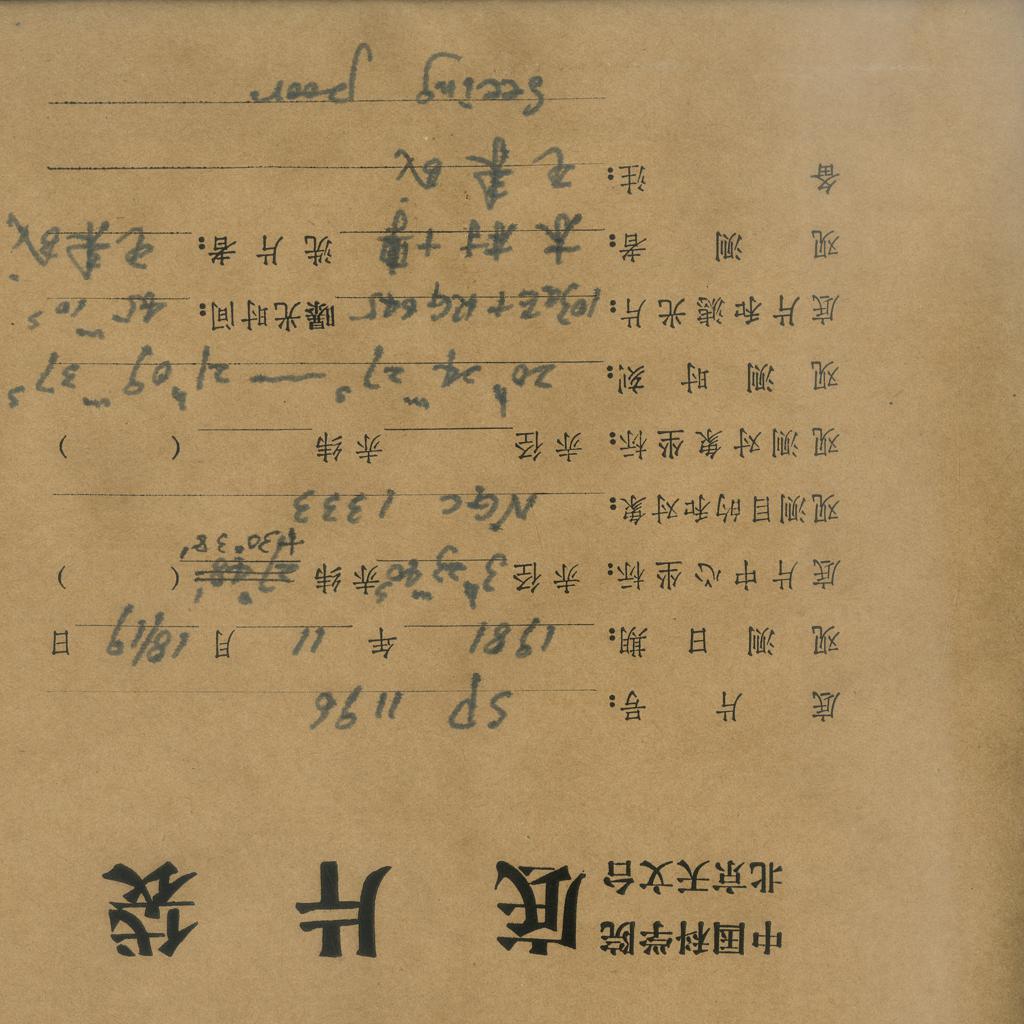 中国科学院
北京天文台
底片袋
底片号: SP 1196
观测日期: 1981 年 11 月 18/19 日
底片中心坐标: 赤径 3h 23m 40s 赤纬 +30°38′ ( )
观测目的和对象: NGC 1333
观测对象坐标: 赤径 赤纬 ( )
观测时刻: 20h 24m 27s — 21h 09m 37s
底片和滤光片: 103aE+RG645 曝光时间: 45m 10s
观测者: 洗片者:
备注:
Seeing poor